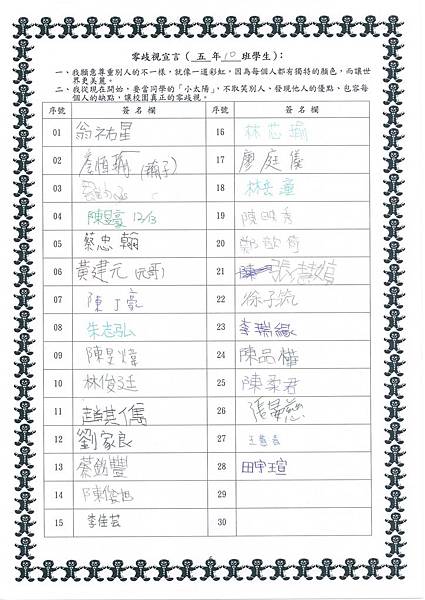 零歧視宣言（五年10班學生）：
一、我願意尊重別人的不一樣，就像一道彩虹，因為每個人都有獨特的顏色，而讓世
界更美麗。
二、我從現在開始，要當同學的「小太陽」，不取笑別人、發現他人的優點、包容每
個人的缺點，讓校園真正的零歧視。
序號 簽名欄 序號 簽名欄
01 翁祐星 16 林芯瑜
02 17 廖庭儀
03 18 林芸蓮
04 陳昱豪 12/13 19
05 蔡忠翰 20
06 黃建元（元哥） 21 張慧禎
07 陳丁豪 22 徐子筑
08 朱志弘 23 李瑞緣
09 陳昱煒 24 陳品樺
10 林俊廷 25 陳柔君
11 趙其儁 26
12 劉家良 27
13 蔡銘豐 28 田宇瑄
14 陳俊旭 29
15 李佳芸 30